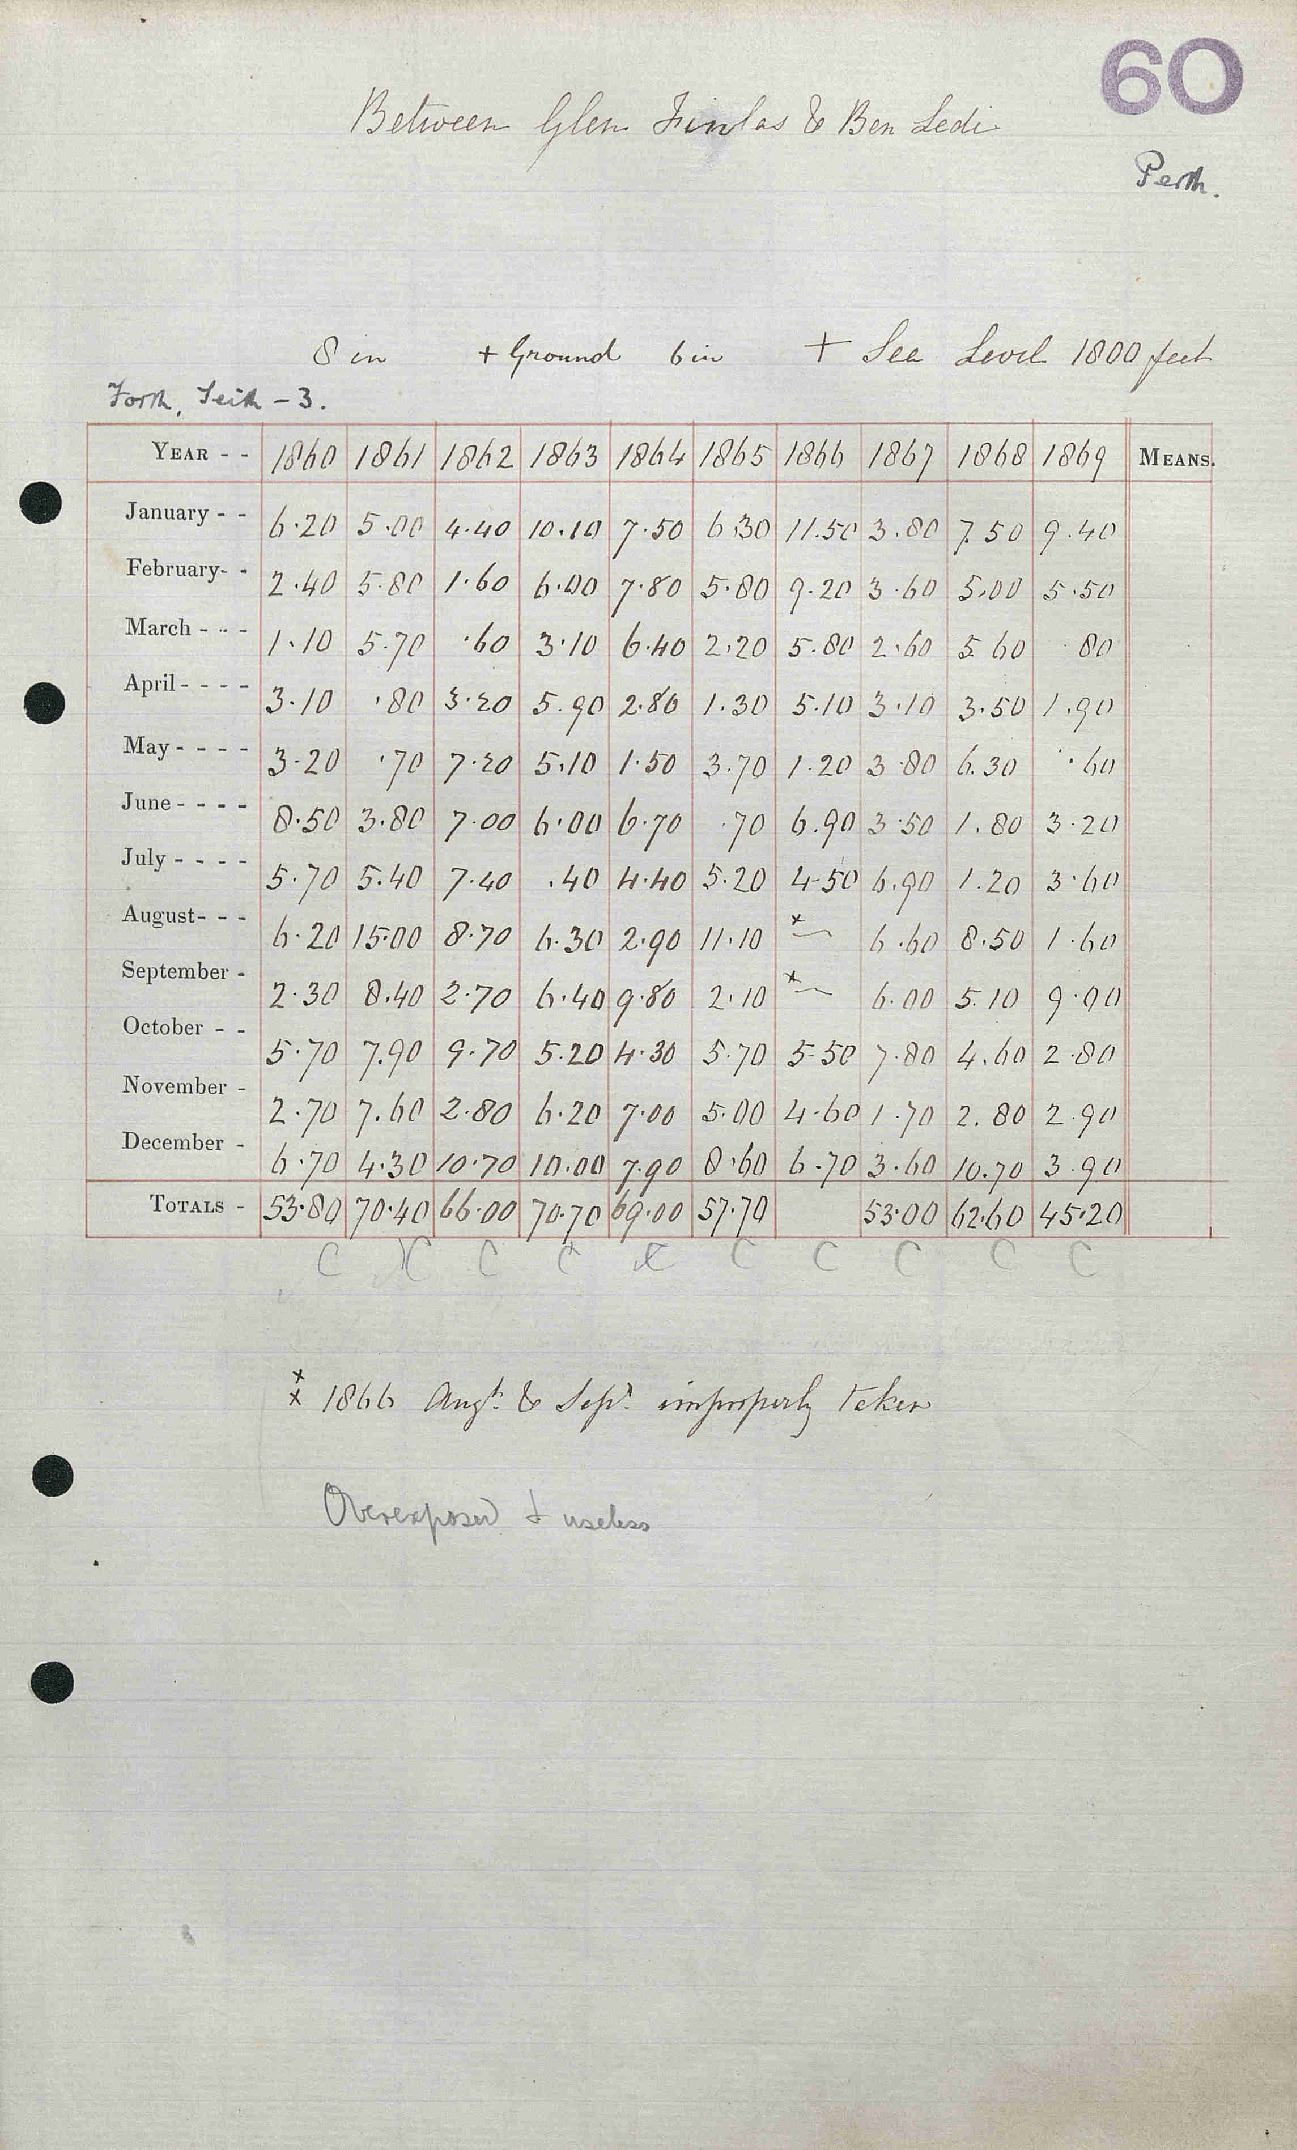 60
Between Glen Finlas & Ben Ledi
Perth.
8 in + Ground 6 in + Sea Level 1800 feet
Forth, Teith - 3.
YEAR - - 1860 1861 1862 1863 1864 1865 1866 1867 1868 1869 MEANS.
January - - 6.20 5.00 4.40 10.10 7.50 6.30 11.50 3.80 7.50 9.40
February - - 2.40 5.80 1.60 6.00 7.80 5.80 9.20 3.60 5.00 5.50
March - - - 1.10 5.70 .60 3.10 6.40 2.20 5.80 2.60 5.60 .80
April - - - - 3.10 .80 3.20 5.90 2.80 1.30 5.10 3.10 3.50 1.90
May - - - - 3.20 .70 7.20 5.10 1.50 3.70 1.20 3.80 6.30 .60
June - - - - 8.50 3.80 7.00 6.00 6.70 .70 6.90 3.50 1.80 3.20
July - - - - 5.70 5.40 7.40 .40 4.40 5.20 4.50 6.90 1.20 3.60
August - - - 6.20 15.00 8.70 6.30 2.90 11.10 x 6.60 8.50 1.60
September - 2.30 8.40 2.70 6.40 9.80 2.10 x 6.00 5.10 9.00
October - - 5.70 7.90 9.70 5.20 4.30 5.70 5.50 7.80 4.60 2.80
November - 2.70 7.60 2.80 6.20 7.00 5.00 4.60 1.70 2.80 2.90
December - 6.70 4.30 10.70 10.00 7.90 8.60 6.70 3.60 10.70 3.90
TOTALS - 53.80 70.40 66.00 70.70 69.00 57.70 53.00 62.60 45.20
C C C C C C C C C C
x x 1866 Augt. & Sept. improperly taken
Overexposed & useless